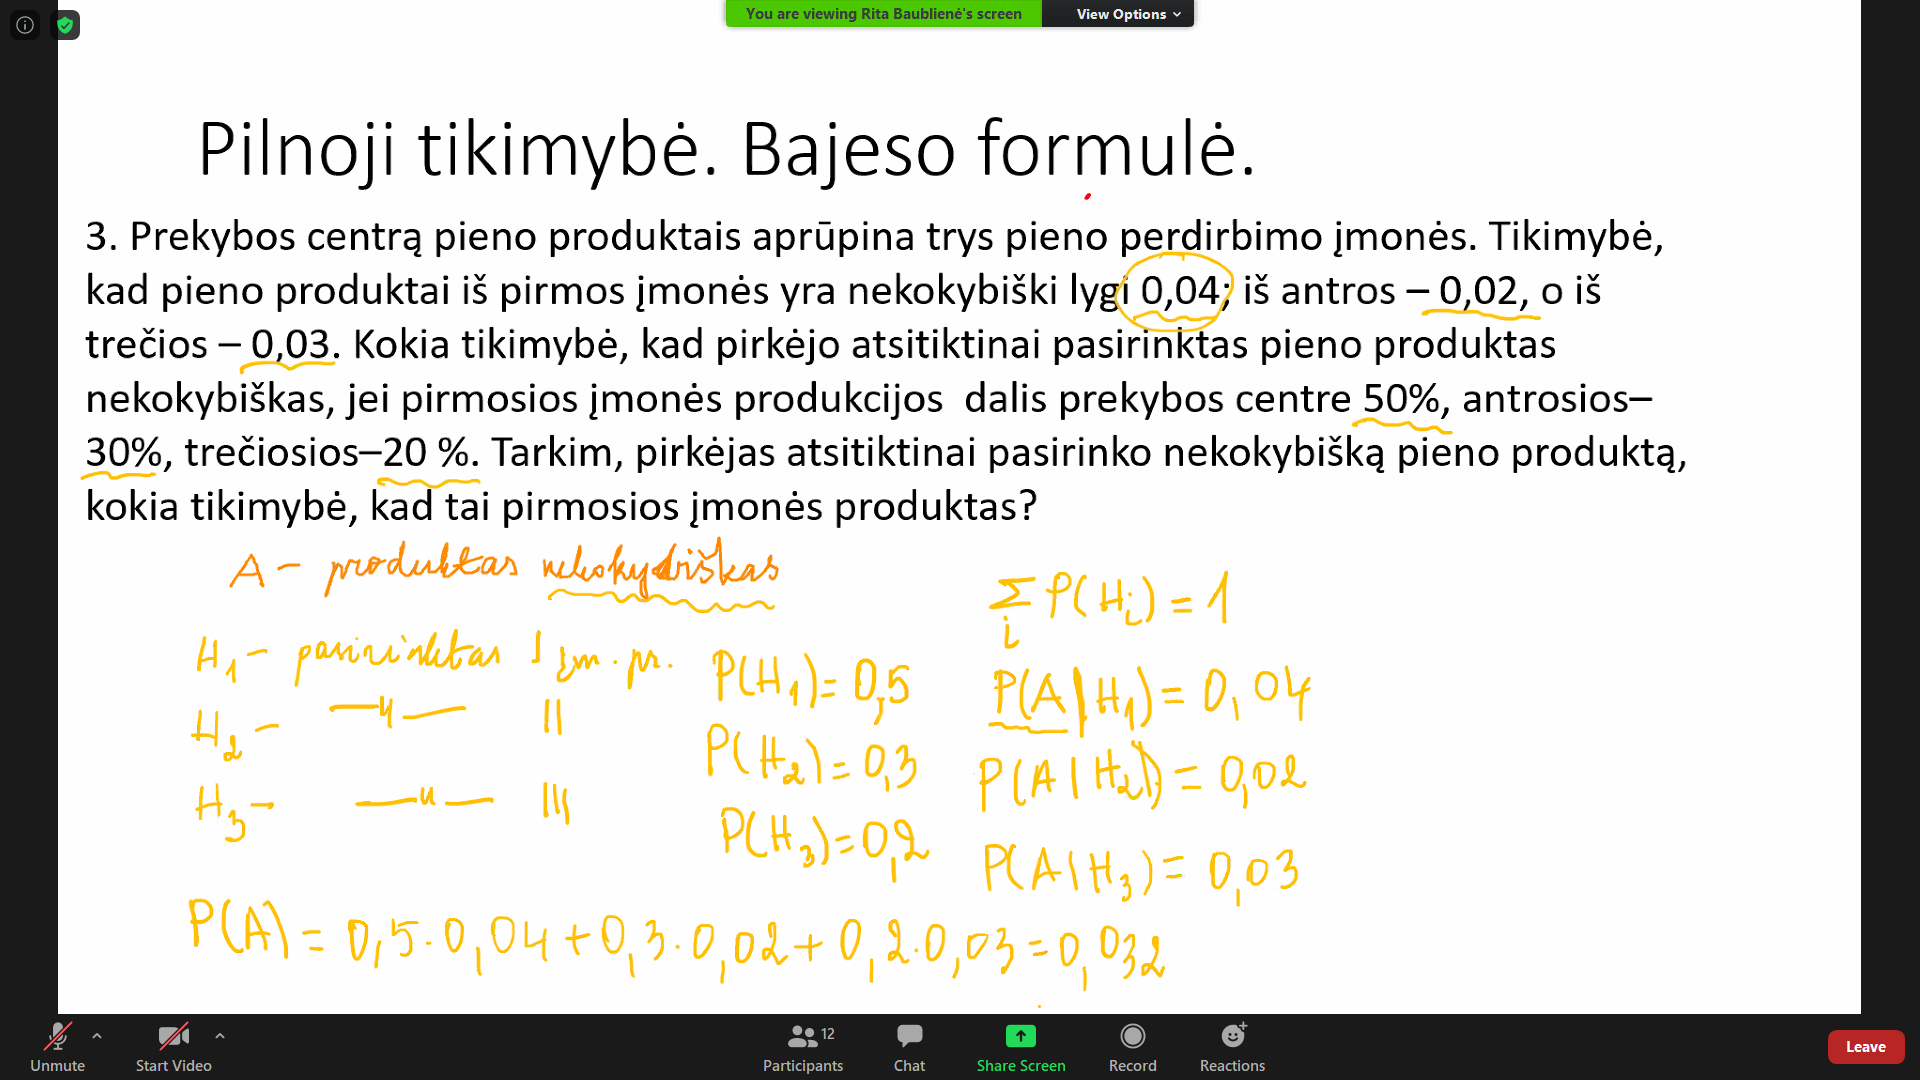 You are viewing Rita Baublienė's screen View Options
Pilnoji tikimybė. Bajeso formulė.
3. Prekybos centrą pieno produktais aprūpina trys pieno perdirbimo įmonės. Tikimybė,
kad pieno produktai iš pirmos įmonės yra nekokybiški lygi 0,04; iš antros – 0,02, o iš
trečios – 0,03. Kokia tikimybė, kad pirkėjo atsitiktinai pasirinktas pieno produktas
nekokybiškas, jei pirmosios įmonės produkcijos dalis prekybos centre 50%, antrosios–
30%, trečiosios–20 %. Tarkim, pirkėjas atsitiktinai pasirinko nekokybišką pieno produktą,
kokia tikimybė, kad tai pirmosios įmonės produktas?
A – produktas nekokybiškas
∑ P(Hi) = 1
i
H1 – pasirinktas I įm. pr. P(H1) = 0,5 P(A|H1) = 0,04
H2 – —"— II P(H2) = 0,3 P(A|H2) = 0,02
H3 – —"— III P(H3) = 0,2 P(A|H3) = 0,03
P(A) = 0,5·0,04+0,3·0,02+0,2·0,03=0,032
Unmute Start Video Participants 12 Chat Share Screen Record Reactions Leave